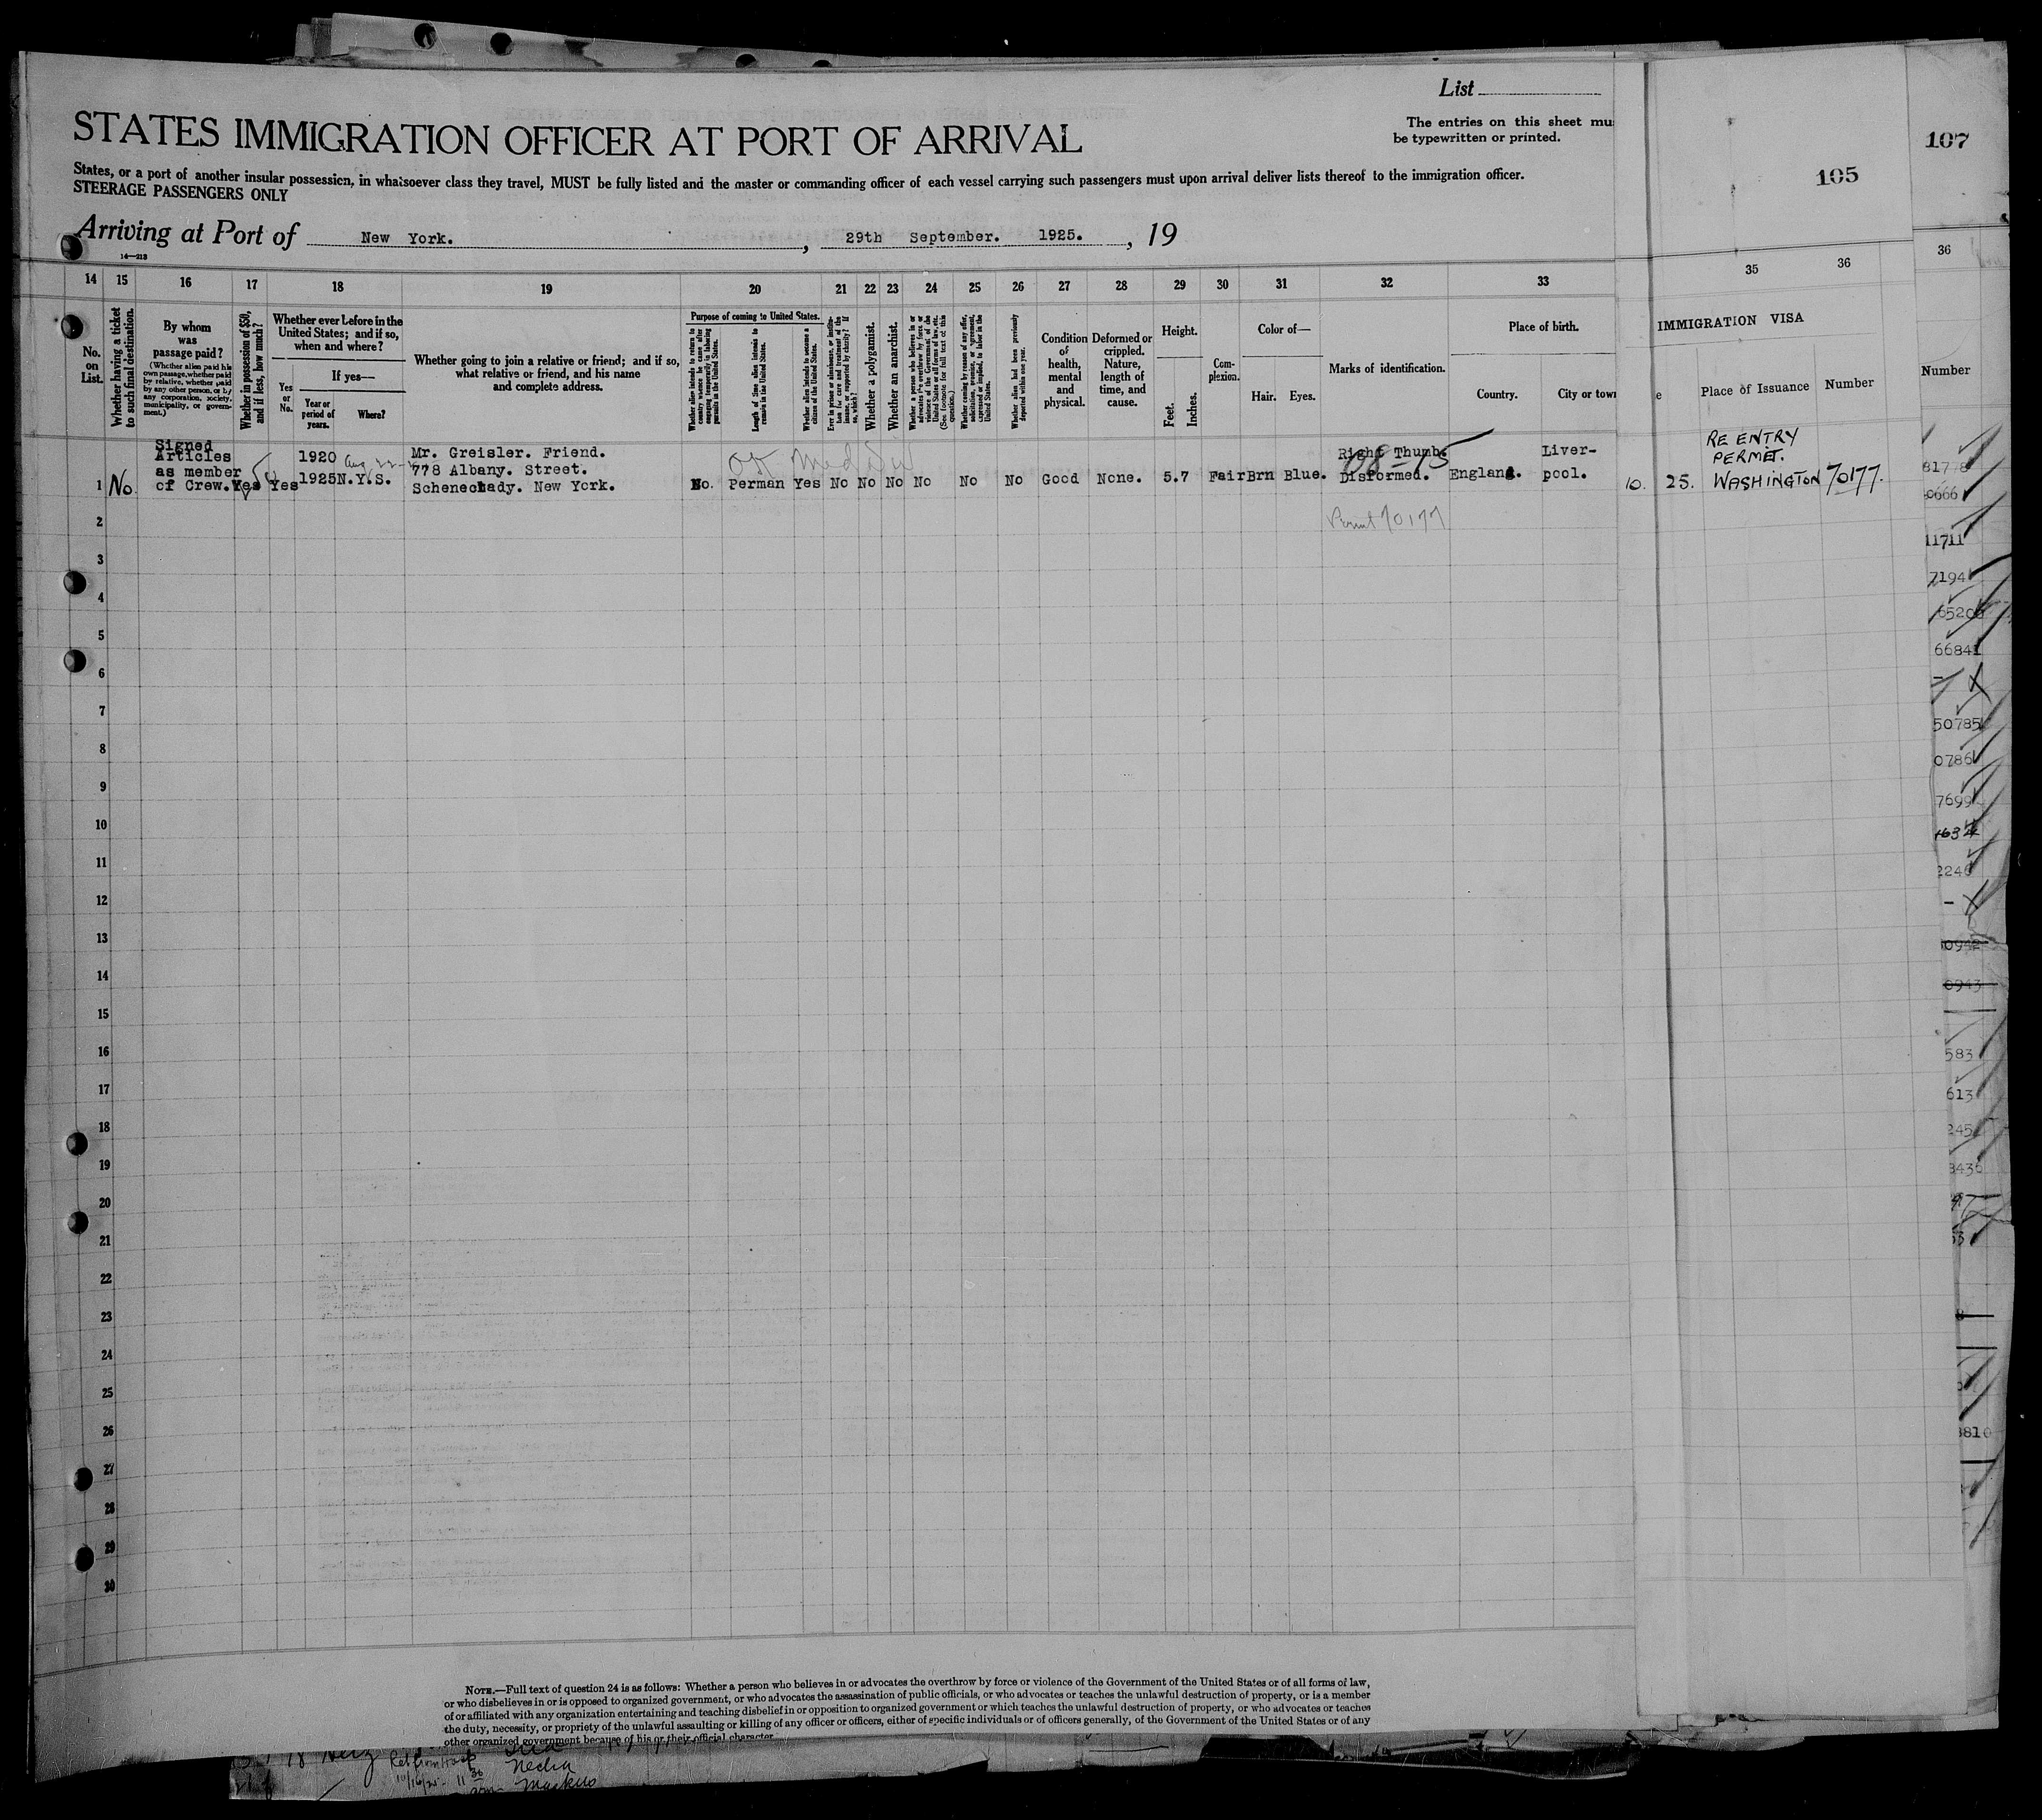 List
STATES IMMIGRATION OFFICER AT PORT OF ARRIVAL
The entries on this sheet mu
be typewritten or printed.
107
105
States, or a port of another insular possession, in whatsoever class they travel, MUST be fully listed and the master or commanding officer of each vessel carrying such passengers must upon arrival deliver lists thereof to the immigration officer.
STEERAGE PASSENGERS ONLY
Arriving at Port of New York. , 29th September. 1925. , 19
14—213
14 15 16 17 18 19 20 21 22 23 24 25 26 27 28 29 30 31 32 33 35 36 36
No. on List.
Whether having a ticket to such final destination.
By whom was passage paid?
(Whether alien paid his own passage, whether paid by relative, whether paid by any other person, or by any corporation, society, municipality, or government.)
Whether in possession of $50, and if less, how much?
Whether ever before in the United States; and if so, when and where?
Yes or No.
If yes—
Year or period of years.
Where?
Whether going to join a relative or friend; and if so, what relative or friend, and his name and complete address.
Purpose of coming to United States.
Whether alien intends to return to country whence he came after engaging temporarily in laboring pursuits in the United States.
Length of time alien intends to remain in the United States.
Whether alien intends to become a citizen of the United States.
Ever in prison or almshouse, or institution for care and treatment of the insane, or supported by charity? If so, which?
Whether a polygamist.
Whether an anarchist.
Whether a person who believes in or advocates the overthrow by force or violence of the Government of the United States or all forms of law, etc. (See footnote for full text of this question.)
Whether coming by reason of any offer, solicitation, promise, or agreement, expressed or implied, to labor in the United States.
Whether alien had been previously deported within one year.
Condition of health, mental and physical.
Deformed or crippled. Nature, length of time, and cause.
Height.
Feet. Inches.
Complexion.
Color of—
Hair. Eyes.
Marks of identification.
Place of birth.
Country. City or town
IMMIGRATION VISA
e Place of Issuance Number
Number
Signed
Articles
as member
of Crew.
1 No Yes Yes
1920 Aug 22
1925 N.Y.S.
Mr. Greisler. Friend.
778 Albany. Street.
Schenechady. New York.
No. Perman Yes No No No No No No Good None. 5.7 Fair Brn Blue.
Right Thumb.
Disformed.
08-15
England.
Liver-
pool.
10. 25.
RE ENTRY
PERMET.
WASHINGTON 70177.
Permit 70177
81778
0666
11711
7194
6520
66841
50785
0786
7699
1632
2246
0942
0943
583
613
245
3436
3810
2
3
4
5
6
7
8
9
10
11
12
13
14
15
16
17
18
19
20
21
22
23
24
25
26
27
28
29
30
NOTE.—Full text of question 24 is as follows: Whether a person who believes in or advocates the overthrow by force or violence of the Government of the United States or of all forms of law,
or who disbelieves in or is opposed to organized government, or who advocates the assassination of public officials, or who advocates or teaches the unlawful destruction of property, or is a member
of or affiliated with any organization entertaining and teaching disbelief in or opposition to organized government or which teaches the unlawful destruction of property, or who advocates or teaches
the duty, necessity, or propriety of the unlawful assaulting or killing of any officer or officers, either of specific individuals or of officers generally, of the Government of the United States or of any
other organized government because of his or their official character